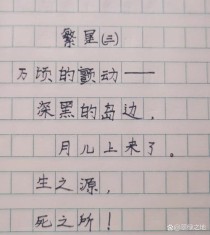 繁星(三)
万顷的颤动——
深黑的岛边，
月儿上来了。
生之源，
死之所！